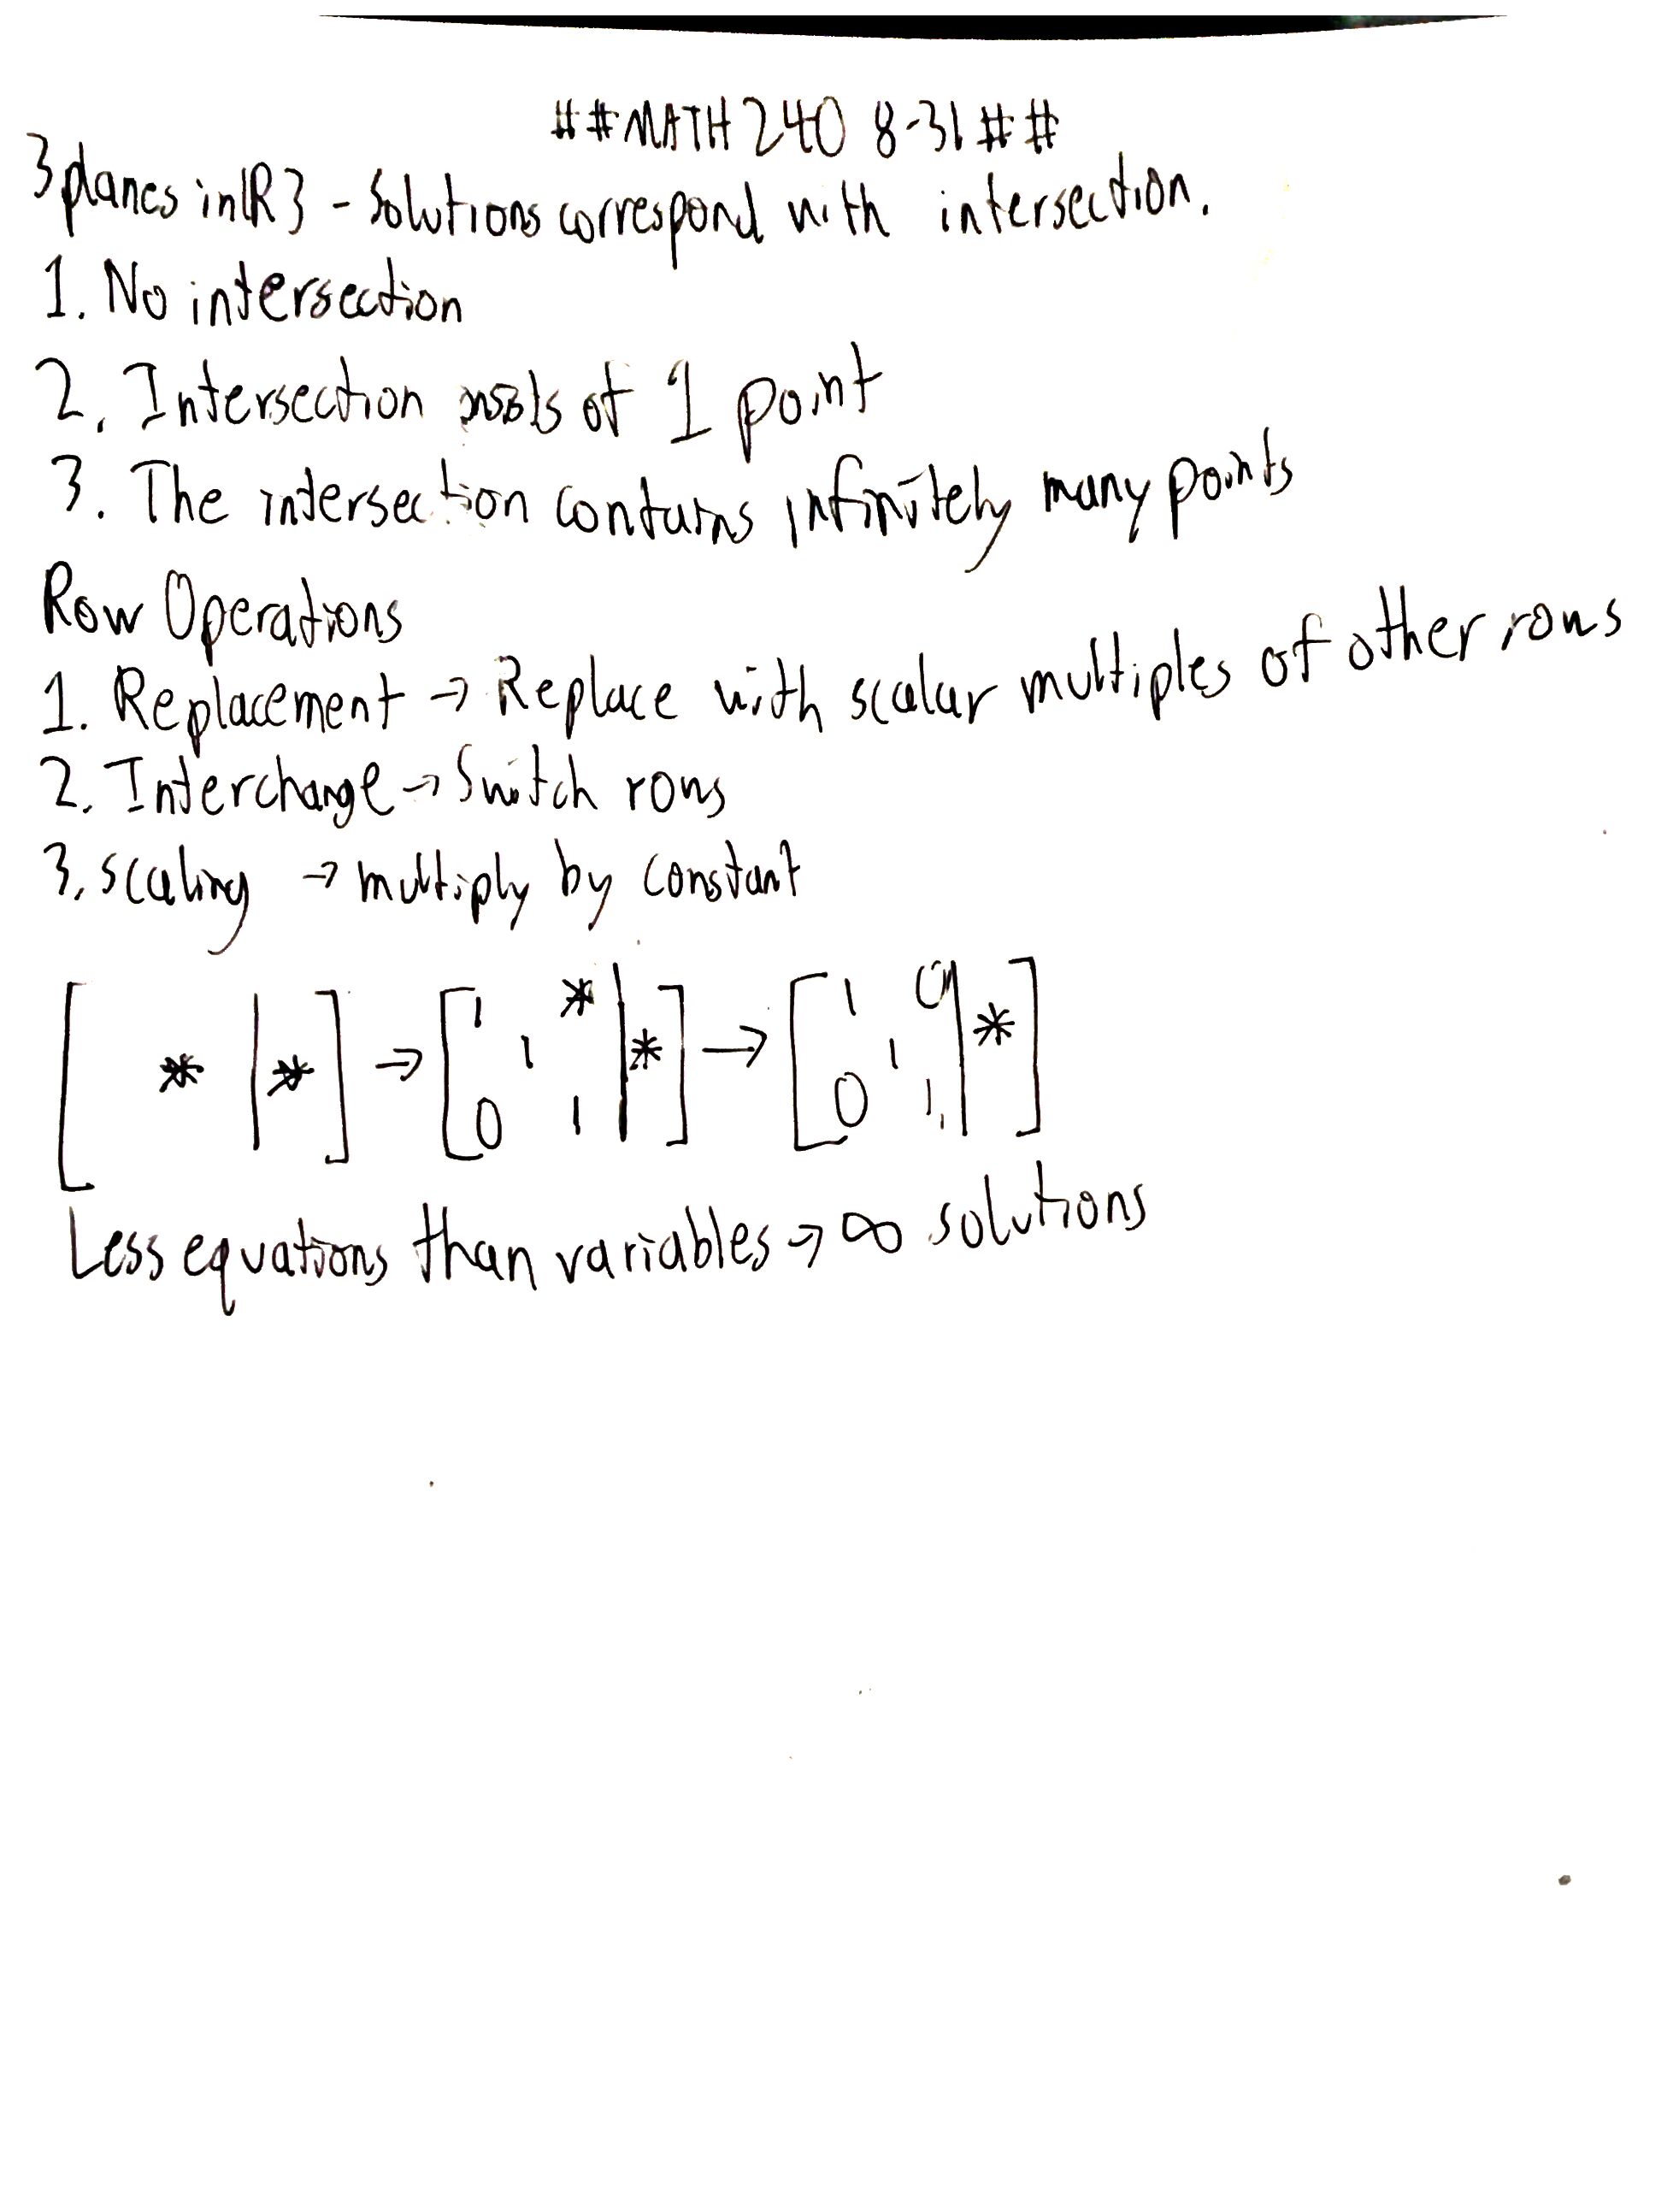 ##MATH 240 8-31##
3 planes in ℝ3 - Solutions correspond with intersection.
1. No intersection
2. Intersection of 1 point
3. The intersection contains infinitely many points
Row Operations
1. Replacement → Replace with scalar multiples of other rows
2. Interchange → Switch rows
3. scaling → multiply by constant
[ * | * ] → [ 1 * 1 0 1 | * ] → [ 1 0 1 0 1 | * ]
Less equations than variables → ∞ solutions